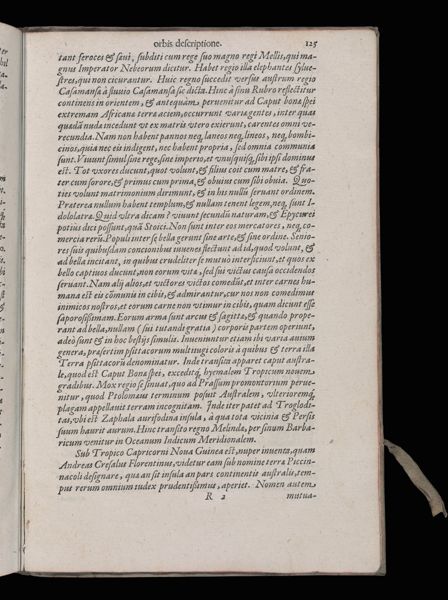 orbis descriptione. 125
tant feroces & seui, subditi cum rege suo magno regi Mellis, qui ma-
gnus Imperator Nebeorum dicitur. Habet regio illa elephantes sylue-
stres, qui non cicurantur. Huic regno succedit versus austrum regio
Casamansa à fluuio Casamansa sic dicta. Hinc à sinu Rubro reflectitur
continens in orientem, & antequam perueniatur ad Caput bonæ spei
extremam Africanæ terræ aciem, occurrunt variæ gentes, inter quas
quædā nuda incedunt vt ex matris vtero exierunt, carentes omni ve-
recundia. Nam non habent pannos neq, laneos neq, lineos, neq, bombi-
cinos, quia nec eis indigent, nec habent propria, sed omnia communia
sunt. Viuunt simul sine rege, sine imperio, et vnusquisq, sibi ipsi dominus
est. Tot vxores ducunt, quot volunt, & filius coit cum matre, & fra-
ter cum sorore, & primus cum prima, & obuius cum sibi obuia. Quo-
ties volunt matrimonium dirimunt, & in his nullū seruant ordinem.
Præterea nullum habent templum, & nullam tenent legem, neq, sunt I-
dololatræ. Quid vltra dicam? viuunt secundū naturam, & Epycurei
potius dici possunt, quā Stoici. Non sunt inter eos mercatores, neq, co-
mercia rerū. Populi inter se bella gerunt sine arte, & sine ordine. Senio-
res suis quibusdam concionibus iuuenes flectunt ad id, quod volunt, &
ad bella incitant, in quibus crudeliter se mutuò interficiunt, et quos ex
bello captiuos ducunt, non eorum vitæ, sed sui victus causa occidendos
seruant. Nam alij alios, et victores victos comedūt, et inter carnes hu-
mana est eis cōmunis in cibis, & admirantur, cur nos non comedimus
inimicos nostros, et eorum carne non vtimur in cibis, quam dicunt esse
saporosissimam. Eorum arma sunt arcus & sagittæ, & quando prope-
rant ad bella, nullam (sui tutandi gratia) corporis partem operiunt,
adeò sunt & in hoc bestijs similes. Inueniuntur etiam ibi varia auium
genera, præsertim psitacorum multiiugi coloris à quibus & terra illa
Terra psitacorū denominatur. Inde transitu apparet caput austra-
le, quod est Caput Bonæ spei, exceditq, hyemalem Tropicum nouem
gradibus. Mox regio se sinuat, quo ad Prassum promontorium perue-
nitur, quod Ptolomæus terminum posuit Australem, vlterioremq,
plagam appellauit terram incognitam. Inde iter patet ad Troglodi-
tas, vbi est Zaphala aurifodina insula, à qua tota vicinia & Persis
suum haurit aurum. Hinc transito regno Melinde, per sinum Barba-
ricum venitur in Oceanum Indicum Meridionalem.
Sub Tropico Capricorni Noua Guinea est, nuper inuenta, quam
Andreas Corsalus Florentinus, videtur eam sub nomine terræ Piccin-
nacoli designare, quæ an sit insula an pars continentis australis, tem-
pus rerum omnium iudex prudentissimus, aperiet. Nomen autem
R 2 mutua-